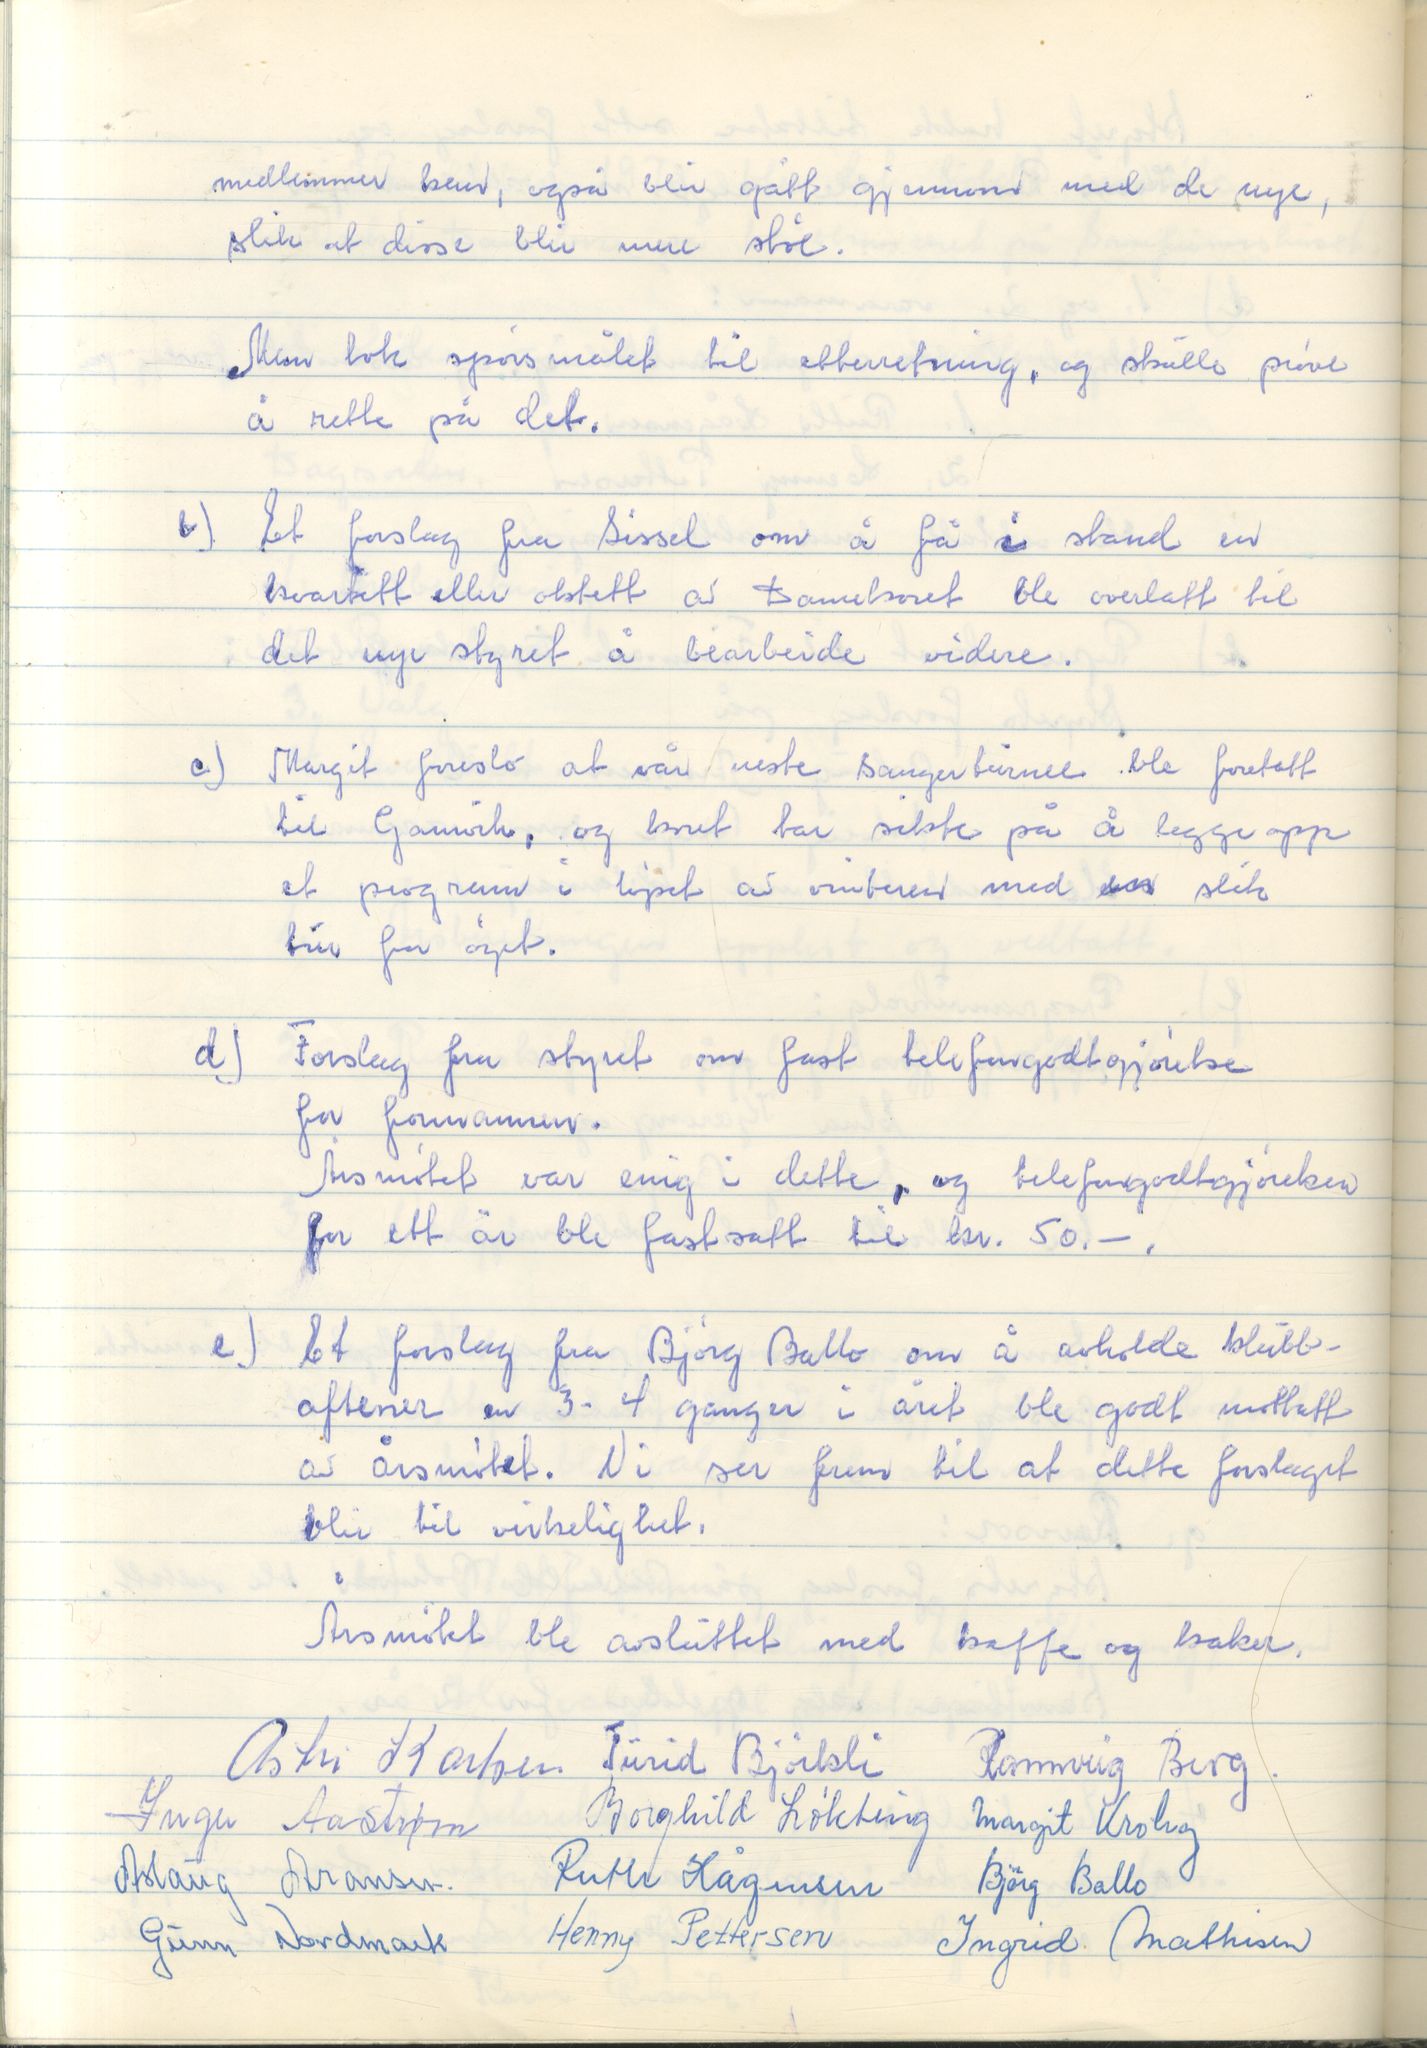 medlemmer kan, også blir gått gjennom med de nye,
slik at disse blir mere stöe.
Man tok spörsmålet til etterretning, og skulle pröve
å rette på det.
b) Et forslag fra Sissel om å få i stand en
kvartett eller oktett av Damekoret ble overlatt til
det nye styret å bearbeide videre.
c) Margit foreslo at vår neste sangerturnee ble foretatt
til Gamvik, og koret tar sikte på å legge opp
et program i löpet av vinteren med en slik
tur for öyet.
d) Forslag fra styret om fast telefongodtgjörelse
for formannen.
Årsmötet var enig i dette, og telefongodtgjörelsen
for ett år ble fastsatt til kr. 50.-.
e) Et forslag fra Björg Ballo om å avholde klubb-
aftener en 3-4 ganger i året ble godt mottatt
av årsmötet. Vi ser frem til at dette forslaget
blir til virkelighet.
Årsmötet ble avsluttet med kaffe og kaker.
Astri Karlsen Turid Björkli Rannveig Berg.
Inger Aastrøm Borghild Løkting Margit Krohg
Aslaug Aronsen. Ruth Hågensen Björg Ballo
Gunn Nordmark Henny Pettersen Ingrid Mathisen